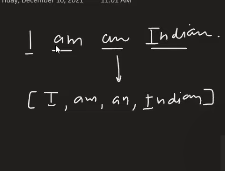 Friday, December 10, 2021 11:01 AM
I am an Indian.
[ I, am, an, Indian ]